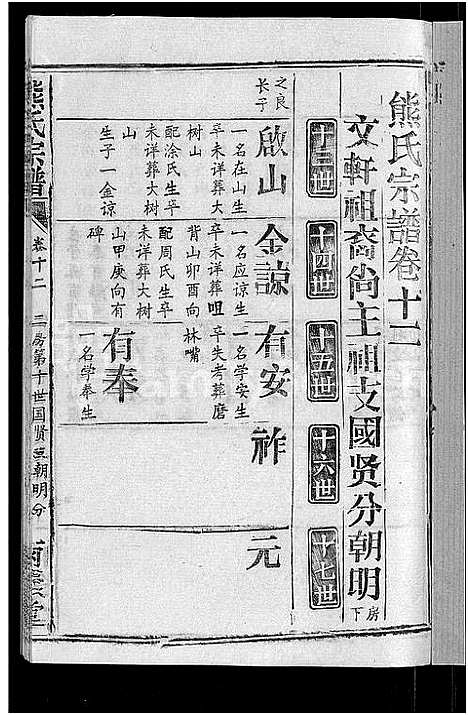 熊氏宗譜卷十二
文軒祖裔尚主祖支國贤分朝明房下
十三世
十四世
十五世
十六世
十七世
之良
长子
啟山
一名在山生
卒未详葬大
树山
配涂氏生卒
未详葬大树
山
生子一金谅
金諒
一名应谅生
卒未详葬咀
背山卯酉向
配周氏生卒
未详葬大树
山甲庚向有
碑
有安
一名学安生
卒失考葬磨
林嘴
有奉
一名学奉生
祚
元
熊氏宗譜
卷十二
二房第十世国贤至朝明分